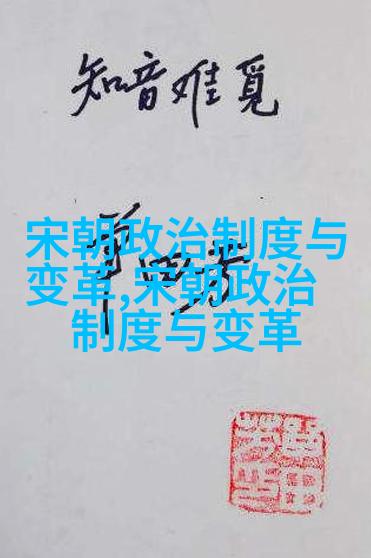 知音难觅
宋朝政治制度与
变革,宋朝政治
制度与变革